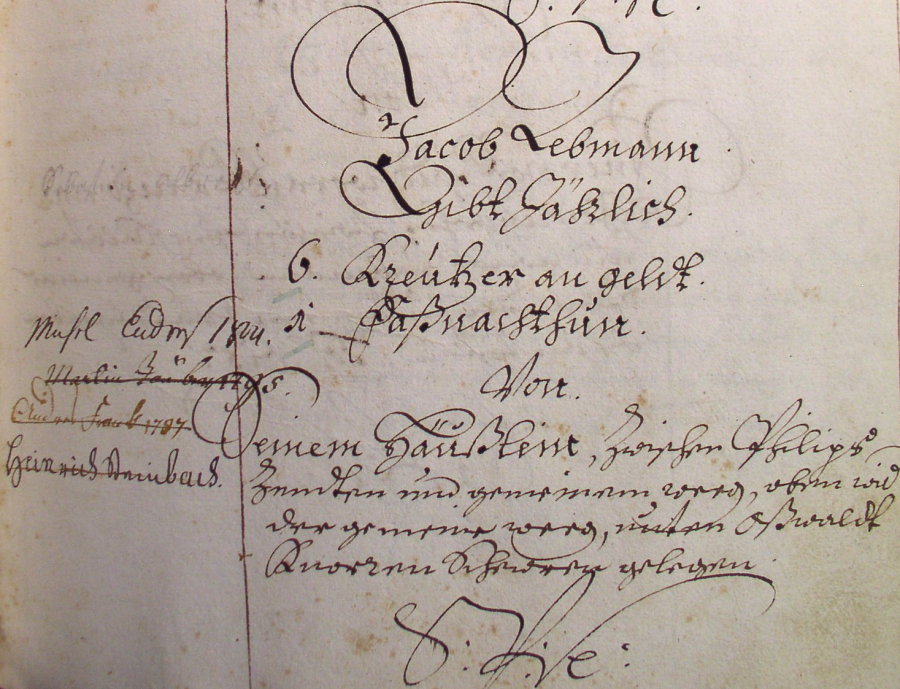 Jacob Lebmann
Gibt Jährlich.
6. Kreützer an geldt.
1 Faßnachthun.
Von.
Seinem Häußlein, Zwischen Philips
Zendten und gemeinem weeg, oben wid
der gemeine weeg, unten Oßwaldt
Knorren Schewren gelegen
Enders
Martin
Frank 1787
Heinrich Steinbach.